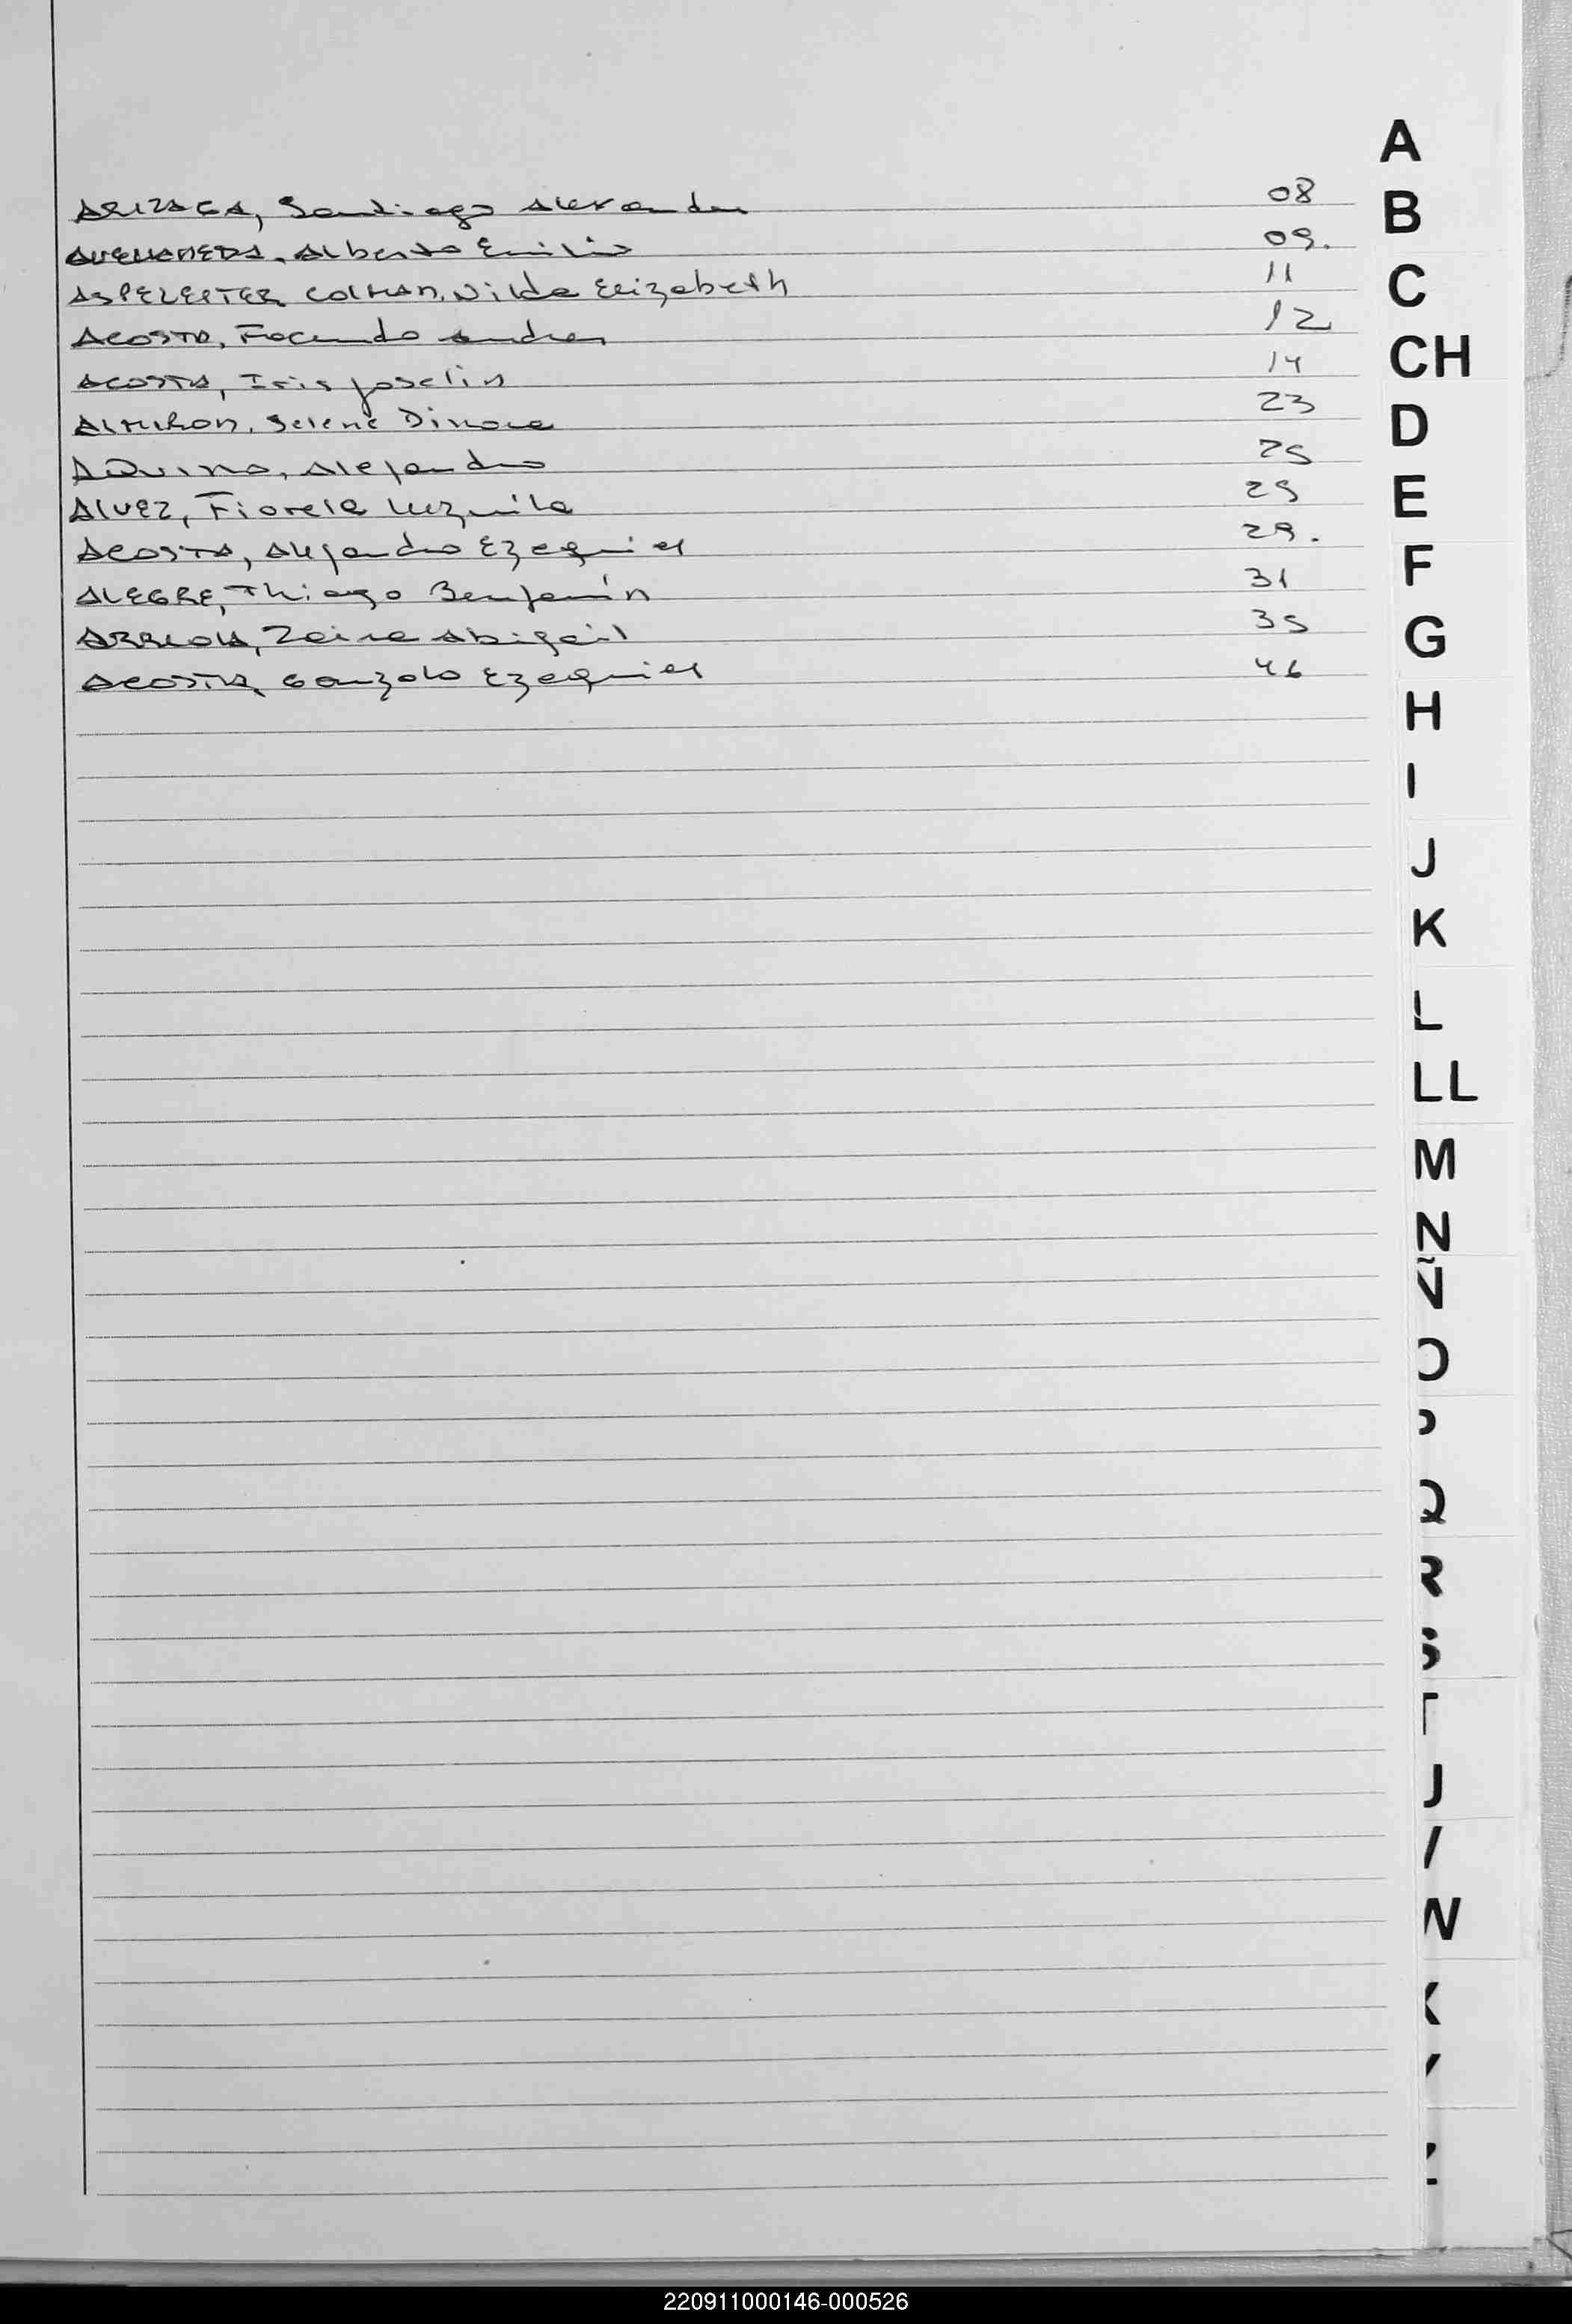 ARIZAGA, Santiago Alexander 08
AVELLANEDA, Alberto Emilio 09.
ASPELEITER COLMAN, Nilda Elizabeth 11
ACOSTA, Facundo Andres 12
ACOSTA, Iris Joselin 14
ALMIRON, Selene 23
AQUINO, Alejandro 25
ALVEZ, Fiorela Luzmila 29
ACOSTA, Alejandro Ezequiel 29.
ALEGRE, Thiago Benjamín 31
ARRIOLA, Zaira Abigail 35
ACOSTA, Gonzalo Ezequiel 46
A
B
C
CH
D
E
F
G
H
I
J
K
L
LL
M
N
Ñ
O
P
Q
R
S
T
U
V
W
X
Y
Z
220911000146-000526